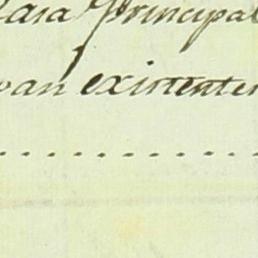 Casa Principal
van existentes